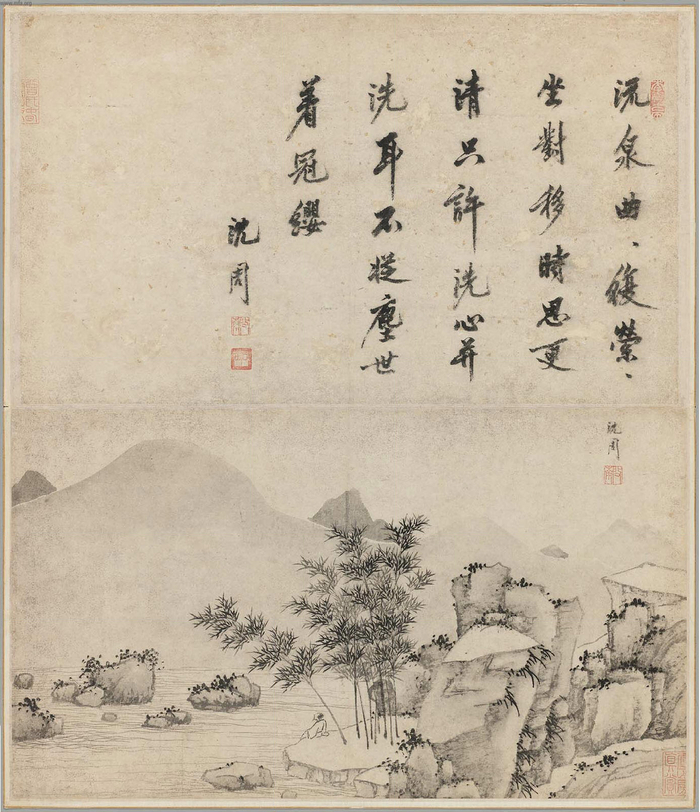 流泉曲〻復縈〻
坐對移時思更
清只許洗心并
洗耳不從塵世
着冠纓
沈周
沈周